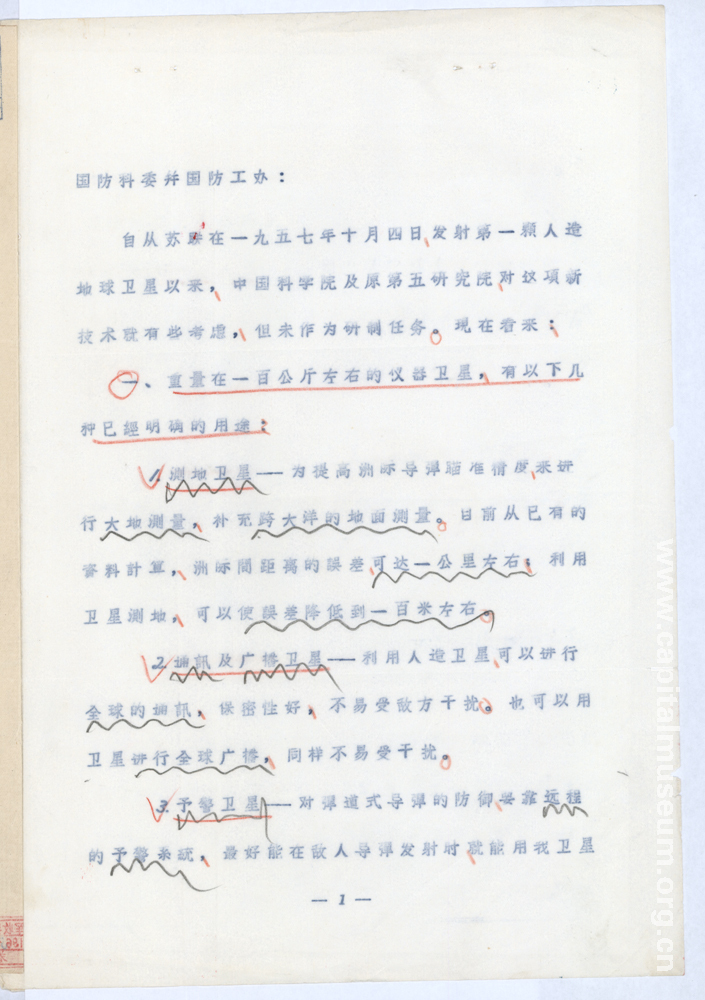 国防科委并国防工办：
自从苏联在一九五七年十月四日，发射第一颗人造
地球卫星以来，中国科学院及原第五研究院，对这项新
技术就有些考虑，但未作为研制任务。现在看来：
一、重量在一百公斤左右的仪器卫星，有以下几
种已經明确的用途：
1.测地卫星——为提高洲际导弹瞄准精度，来进
行大地测量，补充跨大洋的地面测量。目前从已有的
資料計算，洲际間距离的誤差可达一公里左右；利用
卫星测地，可以使誤差降低到一百米左右。
2.通訊及广播卫星——利用人造卫星，可以进行
全球的通訊，保密性好，不易受敌方干扰。也可以用
卫星进行全球广播，同样不易受干扰。
3.予警卫星——对弹道式导弹的防御，要靠远程
的予警系統，最好能在敌人导弹发射时，就能用我卫星
— 1 —
www.capitalmuseum.org.cn